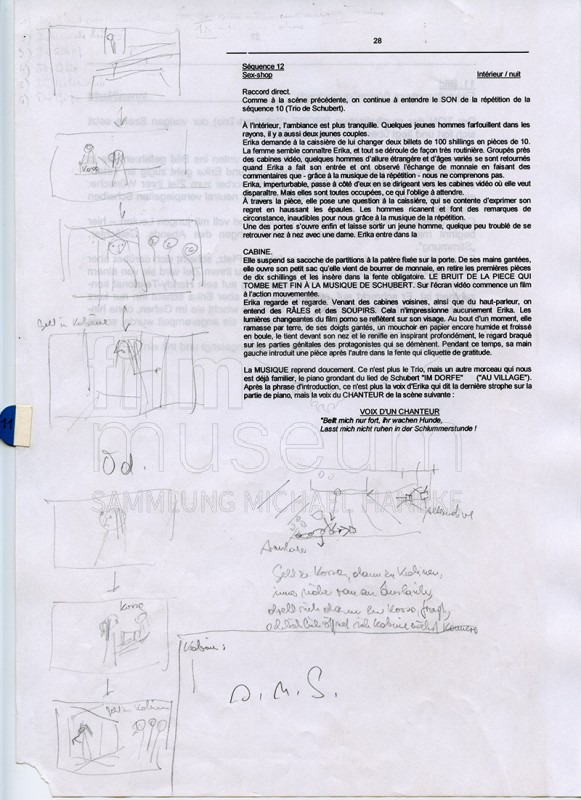 28
Séquence 12
Sex-shop Intérieur / nuit
Raccord direct.
Comme à la scène précédente, on continue à entendre le SON de la répétition de la
séquence 10 (Trio de Schubert).
A l'intérieur, l'ambiance est plus tranquille. Quelques jeunes hommes farfouillent dans les
rayons, il y a aussi deux jeunes couples.
Erika demande à la caissière de lui changer deux billets de 100 shillings en pièces de 10.
La femme semble connaître Erika, et tout se déroule de façon très routinière. Groupés près
des cabines vidéo, quelques hommes d'allure étrangère et d'âges variés se sont retournés
quand Erika a fait son entrée et ont observé l'échange de monnaie en faisant des
commentaires que - grâce à la musique de la répétition - nous ne comprenons pas.
Erika, imperturbable, passe à côté d'eux en se dirigeant vers les cabines vidéo où elle veut
disparaître. Mais elles sont toutes occupées, ce qui l'oblige à attendre.
À travers la pièce, elle pose une question à la caissière, qui se contente d'exprimer son
regret en haussant les épaules. Les hommes ricanent et font des remarques de
circonstance, inaudibles pour nous grâce à la musique de la répétition.
Une des portes s'ouvre enfin et laisse sortir un jeune homme, quelque peu troublé de se
retrouver nez à nez avec une dame. Erika entre dans la
CABINE.
Elle suspend sa sacoche de partitions à la patère fixée sur la porte. De ses mains gantées,
elle ouvre son petit sac qu'elle vient de bourrer de monnaie, en retire les premières pièces
de dix schillings et les insère dans la fente obligatoire. LE BRUIT DE LA PIECE QUI
TOMBE MET FIN À LA MUSIQUE DE SCHUBERT. Sur l'écran vidéo commence un film
à l'action mouvementée.
Erika regarde et regarde. Venant des cabines voisines, ainsi que du haut-parleur, on
entend des RÂLES et des SOUPIRS. Cela n'impressionne aucunement Erika. Les
lumières changeantes du film porno se reflètent sur son visage. Au bout d'un moment, elle
ramasse par terre, de ses doigts gantés, un mouchoir en papier encore humide et froissé
en boule, le tient devant son nez et le renifle en inspirant profondément, le regard braqué
sur les parties génitales des protagonistes qui se démènent. Pendant ce temps, sa main
gauche introduit une pièce après l'autre dans la fente qui cliquette de gratitude.
La MUSIQUE reprend doucement. Ce n'est plus le Trio, mais un autre morceau qui nous
est déjà familier, le piano grondant du lied de Schubert "IM DORFE" ("AU VILLAGE").
Après la phrase d'introduction, ce n'est plus la voix d'Erika qui dit la dernière strophe sur la
partie de piano, mais la voix du CHANTEUR de la scène suivante :
VOIX D'UN CHANTEUR
"Bellt mich nur fort, ihr wachen Hunde,
Lasst mich nicht ruhen in der Schlummerstunde !
film
museum
SAMMLUNG MICHAEL HANEKE
11
Kassa
Od.
Ausländer
Kassa
Kabine:
D.M.S.